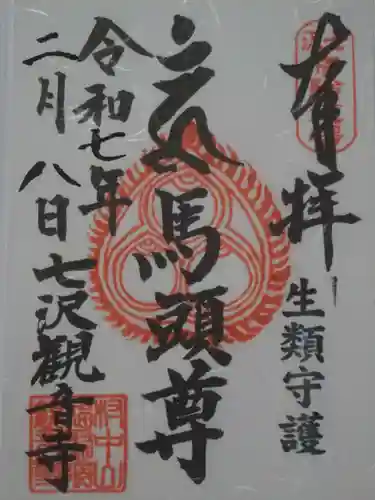 奉拝
生類守護
馬頭尊
令和七年
二月八日
七沢観音寺